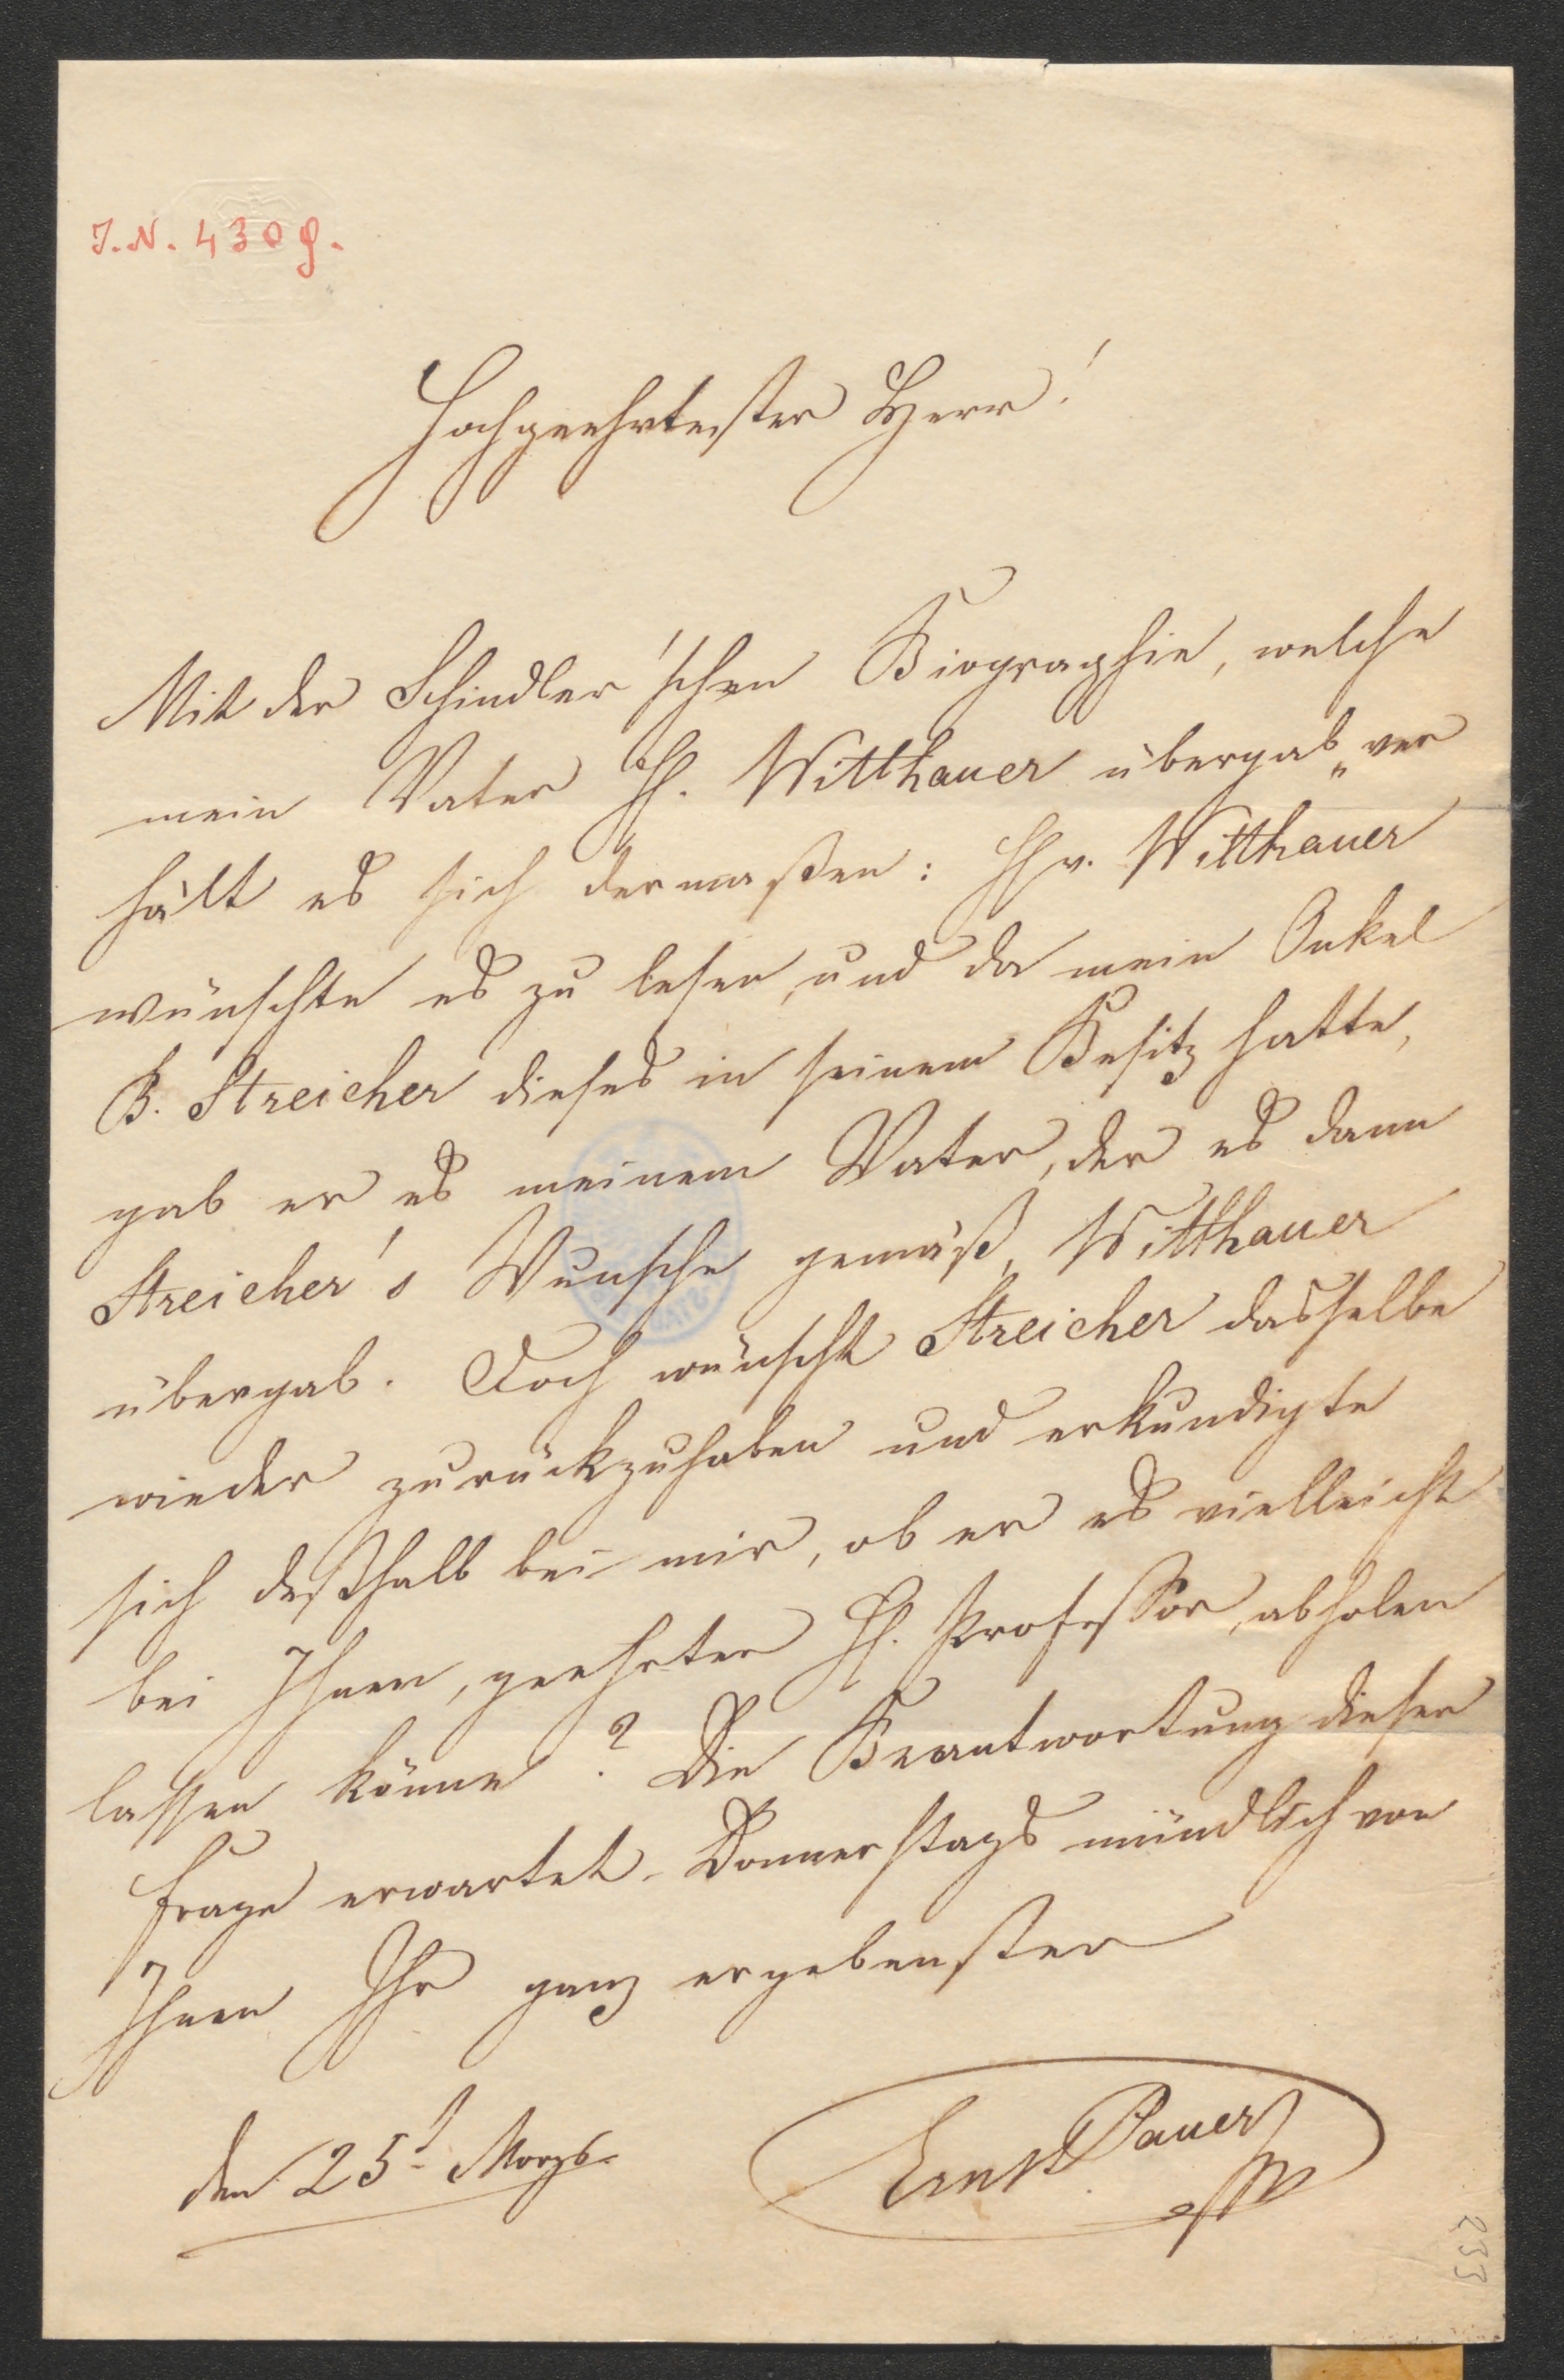 I.N. 4309.
Hochgeehrtester Herr!
Mit der Schindler'schen Biographie, welche
mein Vater H. Witthauer übergab ver„
hält es sich dermaßen: Hr. Witthauer
wünschte es zu lesen, und da mein Onkel
B. Streicher dieses in seinem Besitz hatte,
gab er es meinem Vater, der es dann
Streicher's Wunsche gemäß, Witthauer
übergab. Doch wünscht Streicher dasselbe
wieder zurückzuhaben und erkundigte
sich deßhalb bei mir, ob er es vielleicht
bei Ihnen, geehrter H. Professor, abholen
lassen könne? Die Beantwortung dieser
Frage erwartet Donnerstags mündlich von
Ihnen Ihr ganz ergebenster
den 25t. März.
Ernst Pauer
233